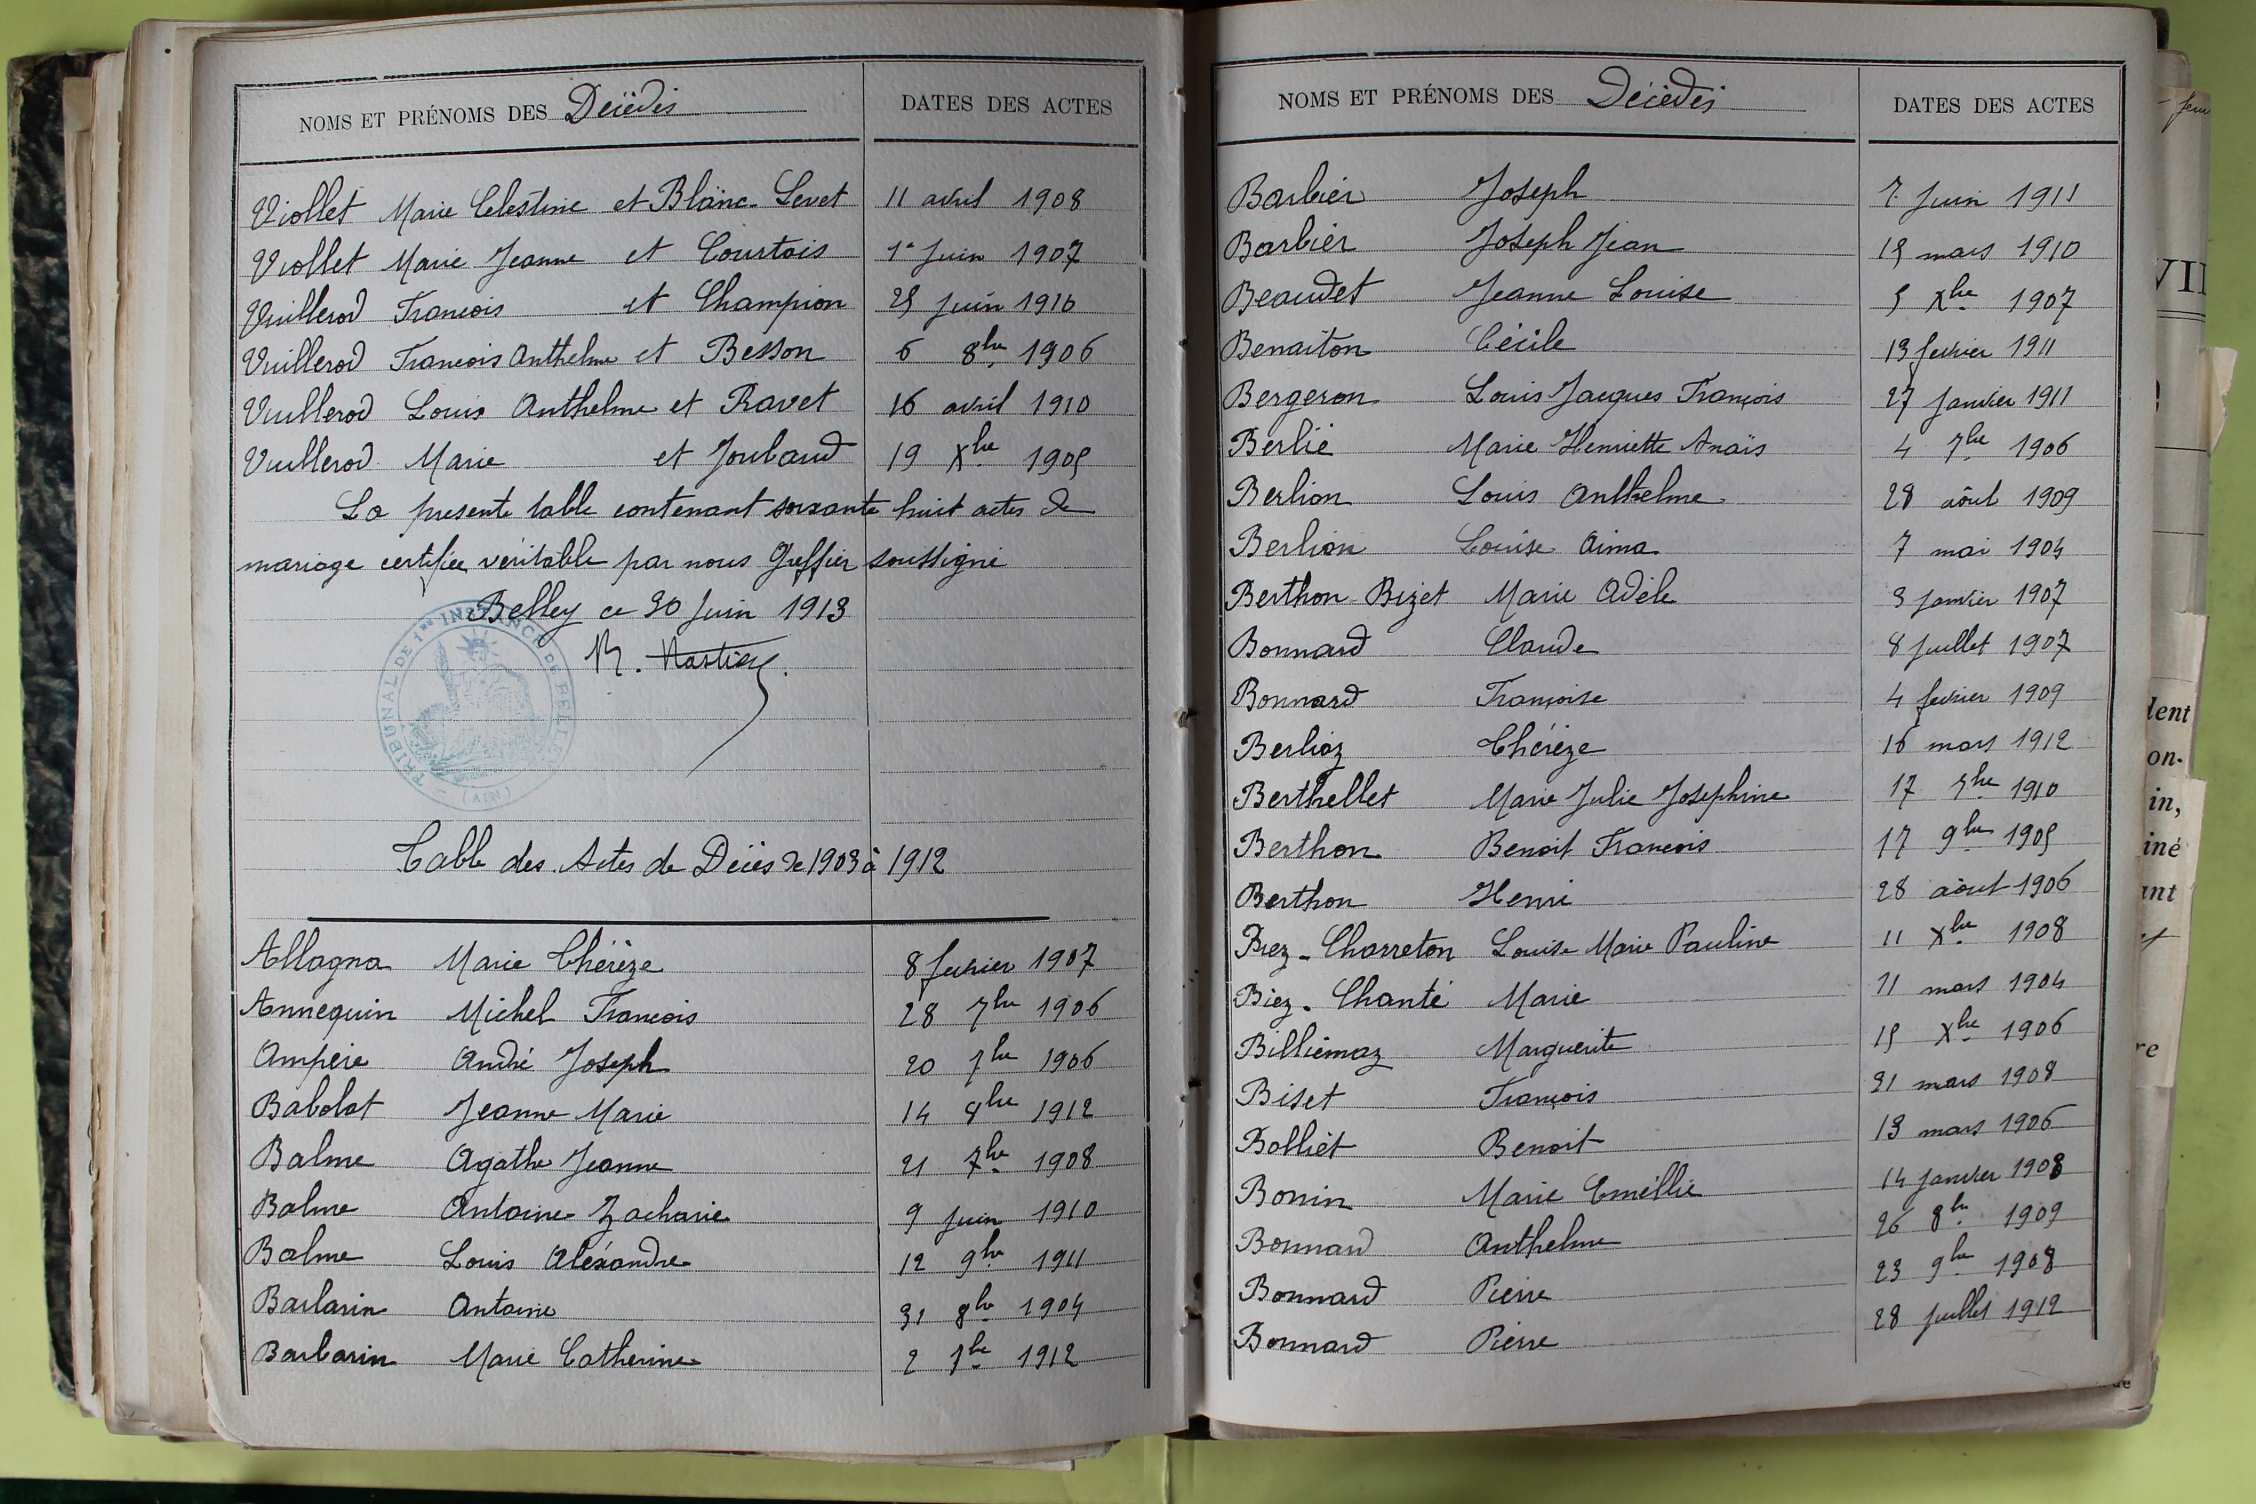 NOMS ET PRÉNOMS DES Décédés DATES DES ACTES
Viollet Marie Celestine et Blanc-Levet 11 avril 1908
Viollet Marie Jeanne et Courtois 1er Juin 1907
Vuillerod François et Champion 25 Juin 1910
Vuillerod François Anthelme et Besson 6 8bre 1906
Vuillerod Louis Anthelme et Ravet 16 avril 1910
Vuillerod Marie et Joubaud 19 Xbre 1905
La presente table contenant soixante huit actes de
mariage certifiée véritable par nous Greffier soussigné
Belley ce 30 Juin 1913
TRIBUNAL DE 1re INSTANCE DE BELLEY (AIN)
Table des Actes de Décès de 1903 à 1912
Allagna Marie Thérèze 8 fevrier 1907
Annequin Michel François 28 7bre 1906
Ampère André Joseph 20 7bre 1906
Babolat Jeanne Marie 14 8bre 1912
Balme Agathe Jeanne 21 7bre 1908
Balme Antoine Zacharie 9 Juin 1910
Balme Louis Aléxandre 12 9bre 1911
Barbarin Antoine 31 8bre 1904
Barbarin Marie Catherine 2 7bre 1912
NOMS ET PRÉNOMS DES Décédés DATES DES ACTES
Barbier Joseph 7 Juin 1911
Barbier Joseph Jean 15 mars 1910
Beaudet Jeanne Louise 5 Xbre 1907
Benaiton Cécile 13 fevrier 1911
Bergeron Louis Jacques François 27 Janvier 1911
Berlié Marie Henriette Anaïs 4 7bre 1906
Berlion Louis Anthelme 28 août 1909
Berlion Louise Aima 7 mai 1904
Berthon-Bizet Marie Adèle 3 Janvier 1907
Bonnard Claude 8 Juillet 1907
Bonnard Françoise 4 fevrier 1909
Berlioz Thérèze 16 mars 1912
Berthellet Marie Julie Joséphine 17 7bre 1910
Berthon Benoit François 17 9bre 1905
Berthon Henri 28 août 1906
Biez-Charreton Louise Marie Pauline 11 Xbre 1908
Biez-Chanté Marie 11 mars 1904
Billiémaz Marguerite 15 Xbre 1906
Biset François 31 mars 1908
Bolliet Benoit 13 mars 1906
Bonin Marie Emélie 14 Janvier 1908
Bonnard Anthelme 26 8bre 1909
Bonnard Pierre 23 9bre 1908
Bonnard Pierre 28 Juillet 1912